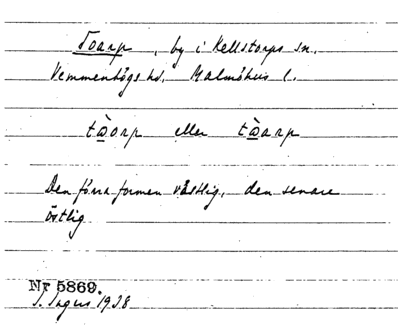 Toarp, by i Kellstorps sn.
Vemmenhögs hd. Malmöhus l.
tàorp eller tàarp
Den förra formen västlig, den senare
östlig
Nr 5869.
I. Ingers 1928